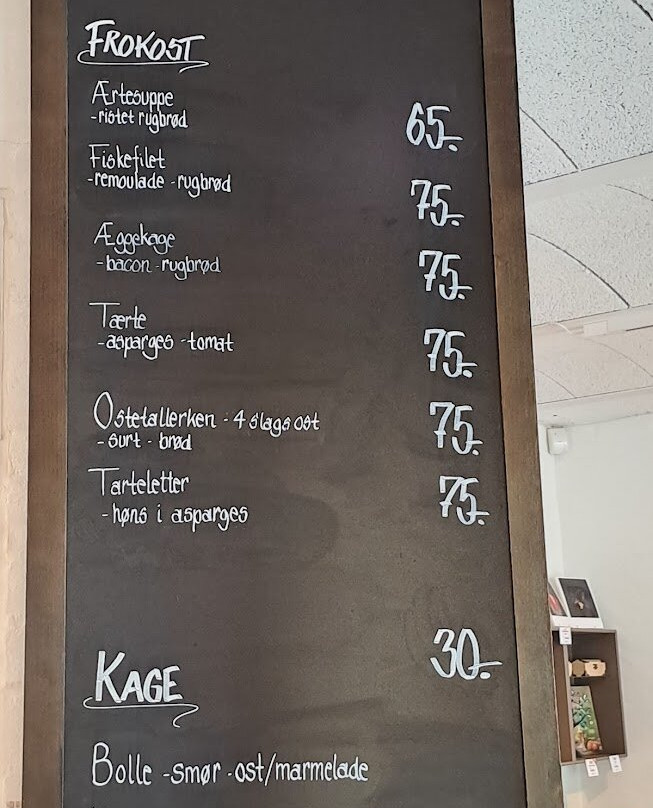 FROKOST
Ærtesuppe
-ristet rugbrød 65.-
Fiskefilet
-remoulade -rugbrød 75.-
Æggekage
-bacon -rugbrød 75.-
Tærte
-asparges -tomat 75.-
Ostetallerken - 4 slags ost
- surt - brød 75.-
Tarteletter
- høns i asparges 75.-
KAGE 30.-
Bolle -smør -ost/marmelade